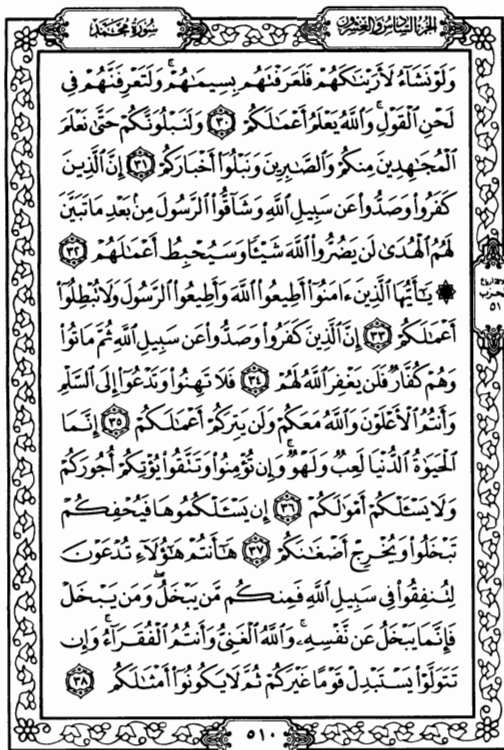 الجزء السادس والعشرون
سورة محمد
وَلَوۡ نَشَآءُ لَأَرَيۡنَٰكَهُمۡ فَلَعَرَفۡتَهُم بِسِيمَٰهُمۡۚ وَلَتَعۡرِفَنَّهُمۡ فِي
لَحۡنِ ٱلۡقَوۡلِۚ وَٱللَّهُ يَعۡلَمُ أَعۡمَٰلَكُمۡ ٣٠ وَلَنَبۡلُوَنَّكُمۡ حَتَّىٰ نَعۡلَمَ
ٱلۡمُجَٰهِدِينَ مِنكُمۡ وَٱلصَّٰبِرِينَ وَنَبۡلُوَاْ أَخۡبَارَكُمۡ ٣١ إِنَّ ٱلَّذِينَ
كَفَرُواْ وَصَدُّواْ عَن سَبِيلِ ٱللَّهِ وَشَآقُّواْ ٱلرَّسُولَ مِنۢ بَعۡدِ مَا تَبَيَّنَ
لَهُمُ ٱلۡهُدَىٰ لَن يَضُرُّواْ ٱللَّهَ شَيۡـٔٗا وَسَيُحۡبِطُ أَعۡمَٰلَهُمۡ ٣٢
۞ يَٰٓأَيُّهَا ٱلَّذِينَ ءَامَنُوٓاْ أَطِيعُواْ ٱللَّهَ وَأَطِيعُواْ ٱلرَّسُولَ وَلَا تُبۡطِلُوٓاْ
أَعۡمَٰلَكُمۡ ٣٣ إِنَّ ٱلَّذِينَ كَفَرُواْ وَصَدُّواْ عَن سَبِيلِ ٱللَّهِ ثُمَّ مَاتُواْ
وَهُمۡ كُفَّارٞ فَلَن يَغۡفِرَ ٱللَّهُ لَهُمۡ ٣٤ فَلَا تَهِنُواْ وَتَدۡعُوٓاْ إِلَى ٱلسَّلۡمِ
وَأَنتُمُ ٱلۡأَعۡلَوۡنَ وَٱللَّهُ مَعَكُمۡ وَلَن يَتِرَكُمۡ أَعۡمَٰلَكُمۡ ٣٥ إِنَّمَا
ٱلۡحَيَوٰةُ ٱلدُّنۡيَا لَعِبٞ وَلَهۡوٞۚ وَإِن تُؤۡمِنُواْ وَتَتَّقُواْ يُؤۡتِكُمۡ أُجُورَكُمۡ
وَلَا يَسۡـَٔلۡكُمۡ أَمۡوَٰلَكُمۡ ٣٦ إِن يَسۡـَٔلۡكُمُوهَا فَيُحۡفِكُمۡ
تَبۡخَلُواْ وَيُخۡرِجۡ أَضۡغَٰنَكُمۡ ٣٧ هَٰٓأَنتُمۡ هَٰٓؤُلَآءِ تُدۡعَوۡنَ
لِتُنفِقُواْ فِي سَبِيلِ ٱللَّهِ فَمِنكُم مَّن يَبۡخَلُۖ وَمَن يَبۡخَلۡ
فَإِنَّمَا يَبۡخَلُ عَن نَّفۡسِهِۦۚ وَٱللَّهُ ٱلۡغَنِيُّ وَأَنتُمُ ٱلۡفُقَرَآءُۚ وَإِن
تَتَوَلَّوۡاْ يَسۡتَبۡدِلۡ قَوۡمًا غَيۡرَكُمۡ ثُمَّ لَا يَكُونُوٓاْ أَمۡثَٰلَكُم ٣٨
٥١
٥١٠